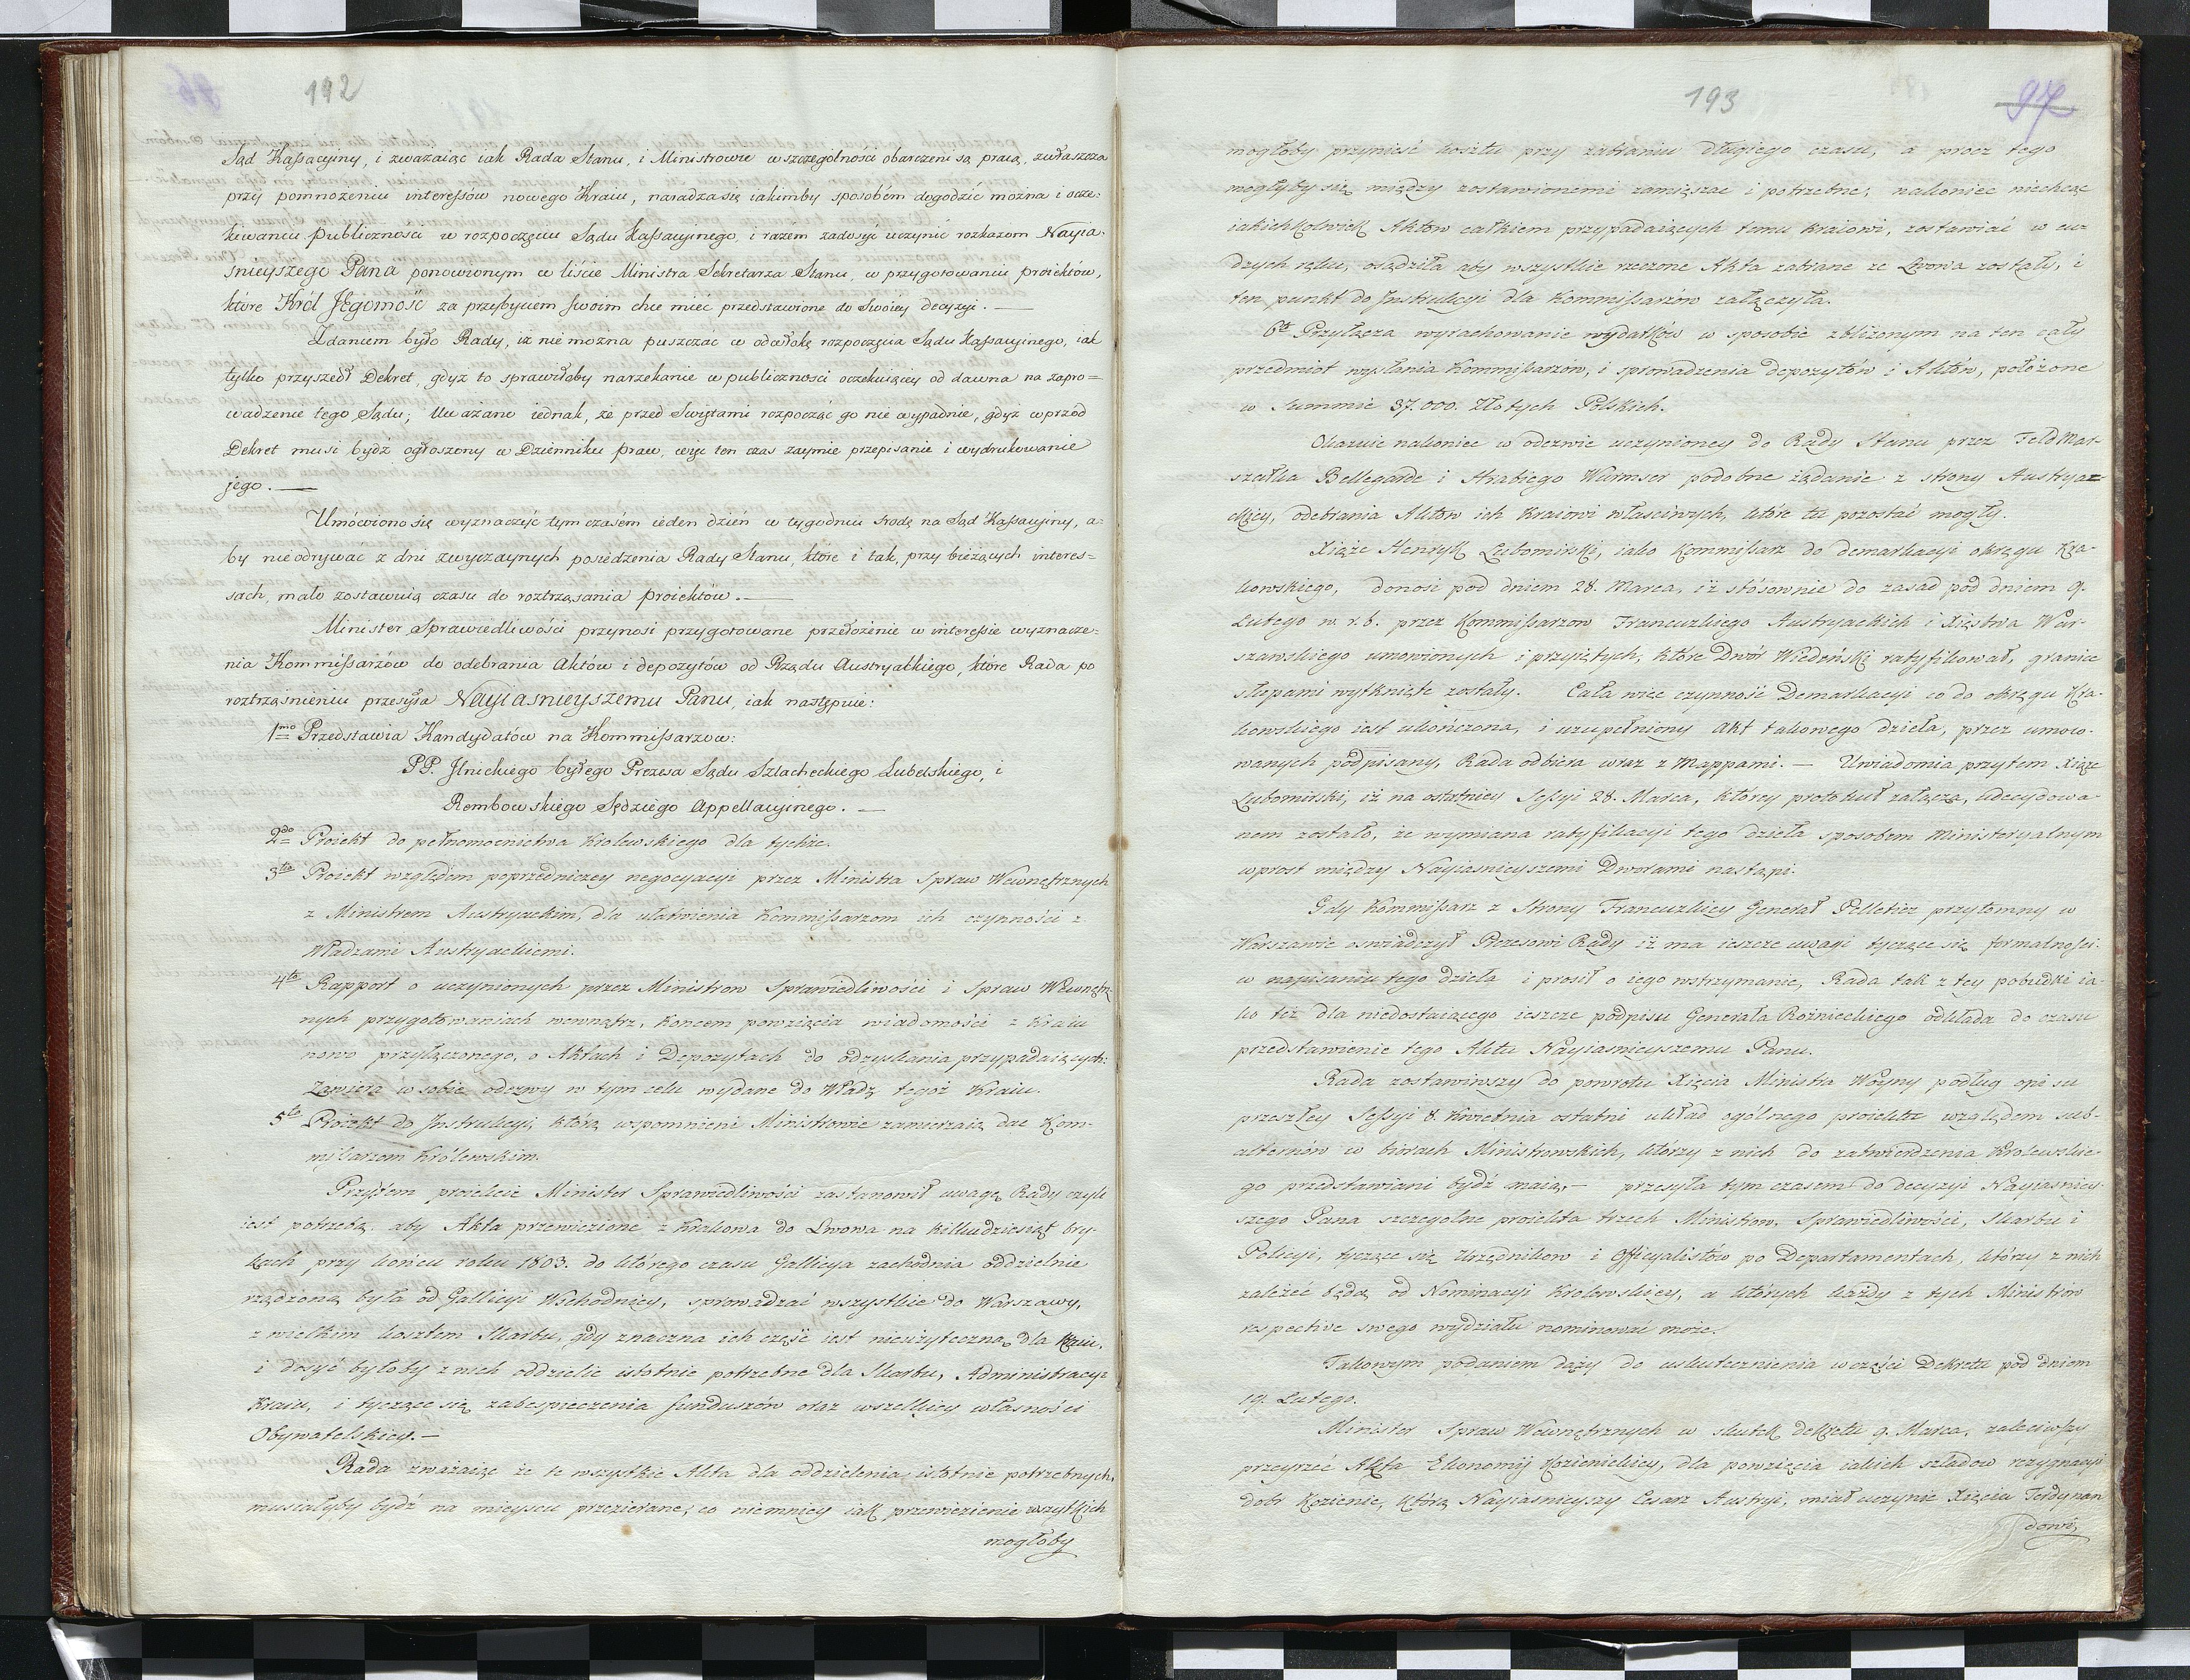 192
Sąd Kassacyiny, i zważaiąc iak Rada Stanu, i Ministrowie w szczególności obarczeni są pracą, zwłaszcza
przy pomnożeniu interessów nowego Kraiu, naradza się iakimby sposobem dogodzić można i ocze-
kiwaniu Publiczności w rozpoczęciu Sądu Kassacyinego, i razem zadosyć uczynić rozkazom Nayia-
śnieyszego Pana ponowionym w liście Ministra Sekretarza Stanu, w przygotowaniu proiektów,
które Król JEgomość za przybyciem swoim chce mieć przedstawione do Swoiey decyzyi. —
Zdaniem było Rady, iż nie można puszczać w odwłokę rozpoczęcia Sądu Kassacyinego, iak
tylko przyszedł Dekret, gdyż to sprawiłoby narzekanie w publiczności oczekuiącey od dawna na zapro=
wadzenie tego Sądu; Uważano iednak, że przed Swiętami rozpocząć go nie wypadnie, gdyż wprzód
Dekret musi bydź ogłoszony w Dzienniku praw, więc ten czas zaymie przepisanie i wydrukowanie
jego. —
Umówiono się wyznaczyć tym czasem ieden dzień w tygodniu srodę na Sąd Kassacyiny, a-
by nie odrywać z dni zwyczaynych posiedzenia Rady Stanu, które i tak, przy bieżących interes=
sach, mało zostawuią czasu do roztrząsania proiektów. —
Minister Sprawiedliwości przynosi przygotowane przełożenie w interessie wyznacze-
nia Kommissarzów do odebrania Aktów i depozytów od Rządu Austryackiego, które Rada po
roztrząśnieniu przesyła Nayiasnieyszemu Panu, iak następuie:
1mo Przedstawia Kandydatów na Kommissarzow:
PP. Ilnickiego byłego Prezesa Sądu Szlacheckiego Lubelskiego, i
Rembowskiego Sędziego Appellacyinego. —
2do Proiekt do pełnomocnictwa Krolewskiego dla tychże.
3tio Proiekt względem poprzedniczey negocyacyi przez Ministra Spraw Wewnętrznych
z Ministrem Austryackim, dla ułatwienia Kommissarzom ich czynności z
Władzami Austryackiemi.
4to Rapport o uczynionych przez Ministrow Sprawiedliwości i Spraw Wewnętrz
nych przygotowaniach wewnątrz, koncem powzięcia wiadomości z Kraiu
nowo przyłączonego, o Aktach i Depozytach do odzyskania przypadaiących:
Zawiera w sobie odezwy w tym celu wydane do Władz tegoż Kraiu.
5to Proiekt do Instrukcyi, którą wspomnieni Ministrowie zamierzaią dać Kom-
missarzom Królewskim.
Przytem proiekcie Minister Sprawiedliwości zastanowił uwagę Rady czyli
iest potrzebą, aby Akta przewiezione z Krakowa do Lwowa na kilkudziesiąt bry-
kach przy końcu roku 1803. do którego czasu Gallicya zachodnia oddzielnie
rządzoną była od Gallicyi Wschodniey, sprowadzać wszystkie do Warszawy,
z wielkim kosztem Skarbu, gdy znaczna ich część iest nieużyteczną dla Kraiu,
i dosyć byłoby z nich oddzielić istotnie potrzebne dla Skarbu, Administracyi
Kraiu, i tyczące się zabespieczenia funduszów oraz wszelkiey własności
Obywatelskiey. —
Rada zważaiąc że te wszystkie Akta dla oddzielenia istotnie potrzebnych,
musiałyby bydź na mieyscu przezierane, co niemniey iak przewiezienie wszystkich
mogłoby
193
97
mogłoby przynieść kosztu przy zabraniu długiego czasu, a procz tego
mogłyby się między zostawionemi zamięszać i potrzebne; nakoniec niechcąc
iakichkolwiek Aktow całkiem przypadaiących temu kraiowi, zostawiać w cu-
dzych ręku, osądziła aby wszystkie rzeczone Akta zabrane ze Lwowa zostały, i
ten punkt do Instrukcyi dla Kommissarzów załączyła.
6to Przyłącza wyrachowanie wydatków w sposobie zbliżonym na ten cały
przedmiot wysłania Kommissarzów, i sprowadzenia depozytów i Aktów, położone
w Summie 37.000. Złotych Polskich.
Okazuie nakoniec w odezwie uczynioney do Rady Stanu przez FeldMar-
szałka Bellegarde i Hrabiego Wurmser podobne żądanie z strony Austryac-
kiey, odebrania Aktow ich kraiowi właściwych, które tu pozostać mogły.
Xiąże Henryk Lubomirski, iako Kommissarz do demarkacyi okręgu Kra-
kowskiego, donosi pod dniem 28. Marca, iż stósownie do zasad pod dniem 9.
Lutego w. r. b. przez Kommissarzow Francuzkiego Austryackich i Xięstwa War-
szawskiego umowionych i przyiętych, które Dwór Wiedeński ratyfikował, granice
słupami wytknięte zostały. Cała więc czynność Demarkacyi co do okręgu Kra-
kowskiego iest ukończona, i uzupełniony akt takowego dzieła, przez umoco-
wanych podpisany, Rada odbiera wraz z Mappami. — Uwiadomia przytem Xiąże
Lubomirski, iż na ostatniey Sessyi 28. Marca, którey protokuł załącza, udecydowa-
nem zostało, że wymiana ratyfikacyi tego dzieła sposobem Ministeryalnym
wprost między Nayiasnieyszemi Dworami nastąpi.
Gdy Kommissarz z Strony Francuzkiey Generał Pelletier przytomny w
Warszawie oswiadczył Prezesowi Rady iż ma ieszcze uwagi tyczące się formalności
w napisaniu tego dzieła i prosił o iego wstrzymanie, Rada tak z tey pobudki ia-
ko też dla niedostaiącego ieszcze podpisu Generała Rożnieckiego odkłada do czasu
przedstawienie tego Aktu Nayiasnieyszemu Panu.
Rada zostawiwszy do powrotu Xięcia Ministra Woyny podług opisu
przeszłey Sessyi 8. Kwietnia ostatni układ ogólnego proiektu względem sub-
alternów w biorach Ministrowskich, którzy z nich do zatwierdzenia Krolewskie-
go przedstawiani bydź maią, — przesyła tym czasem do decyzyi Nayiasniey-
szego Pana szczególne proiekta trzech Ministrow, Sprawiedliwości, Skarbu i
Policyi, tyczące się Urzędnikow i Officyalistów po Departamentach, którzy z nich
zależeć będą od Nominacyi Krolewskiey, a których każdy z tych Ministrow
respective swego wydziału nominować może.
Takowym podaniem dąży do uskutecznienia w części Dekretu pod dniem
19. Lutego.
Minister Spraw Wewnętrznych w skutek dekretu 9. Marca, zaleciwszy
przeyrzeć Akta Ekonomij Kozienickiey, dla powzięcia iakich szladow rezygnacyi
dobr Kozienic, którą Nayiasnieyszy Cesarz Austryi, miał uczynić Xięciu Ferdynan
dowi,